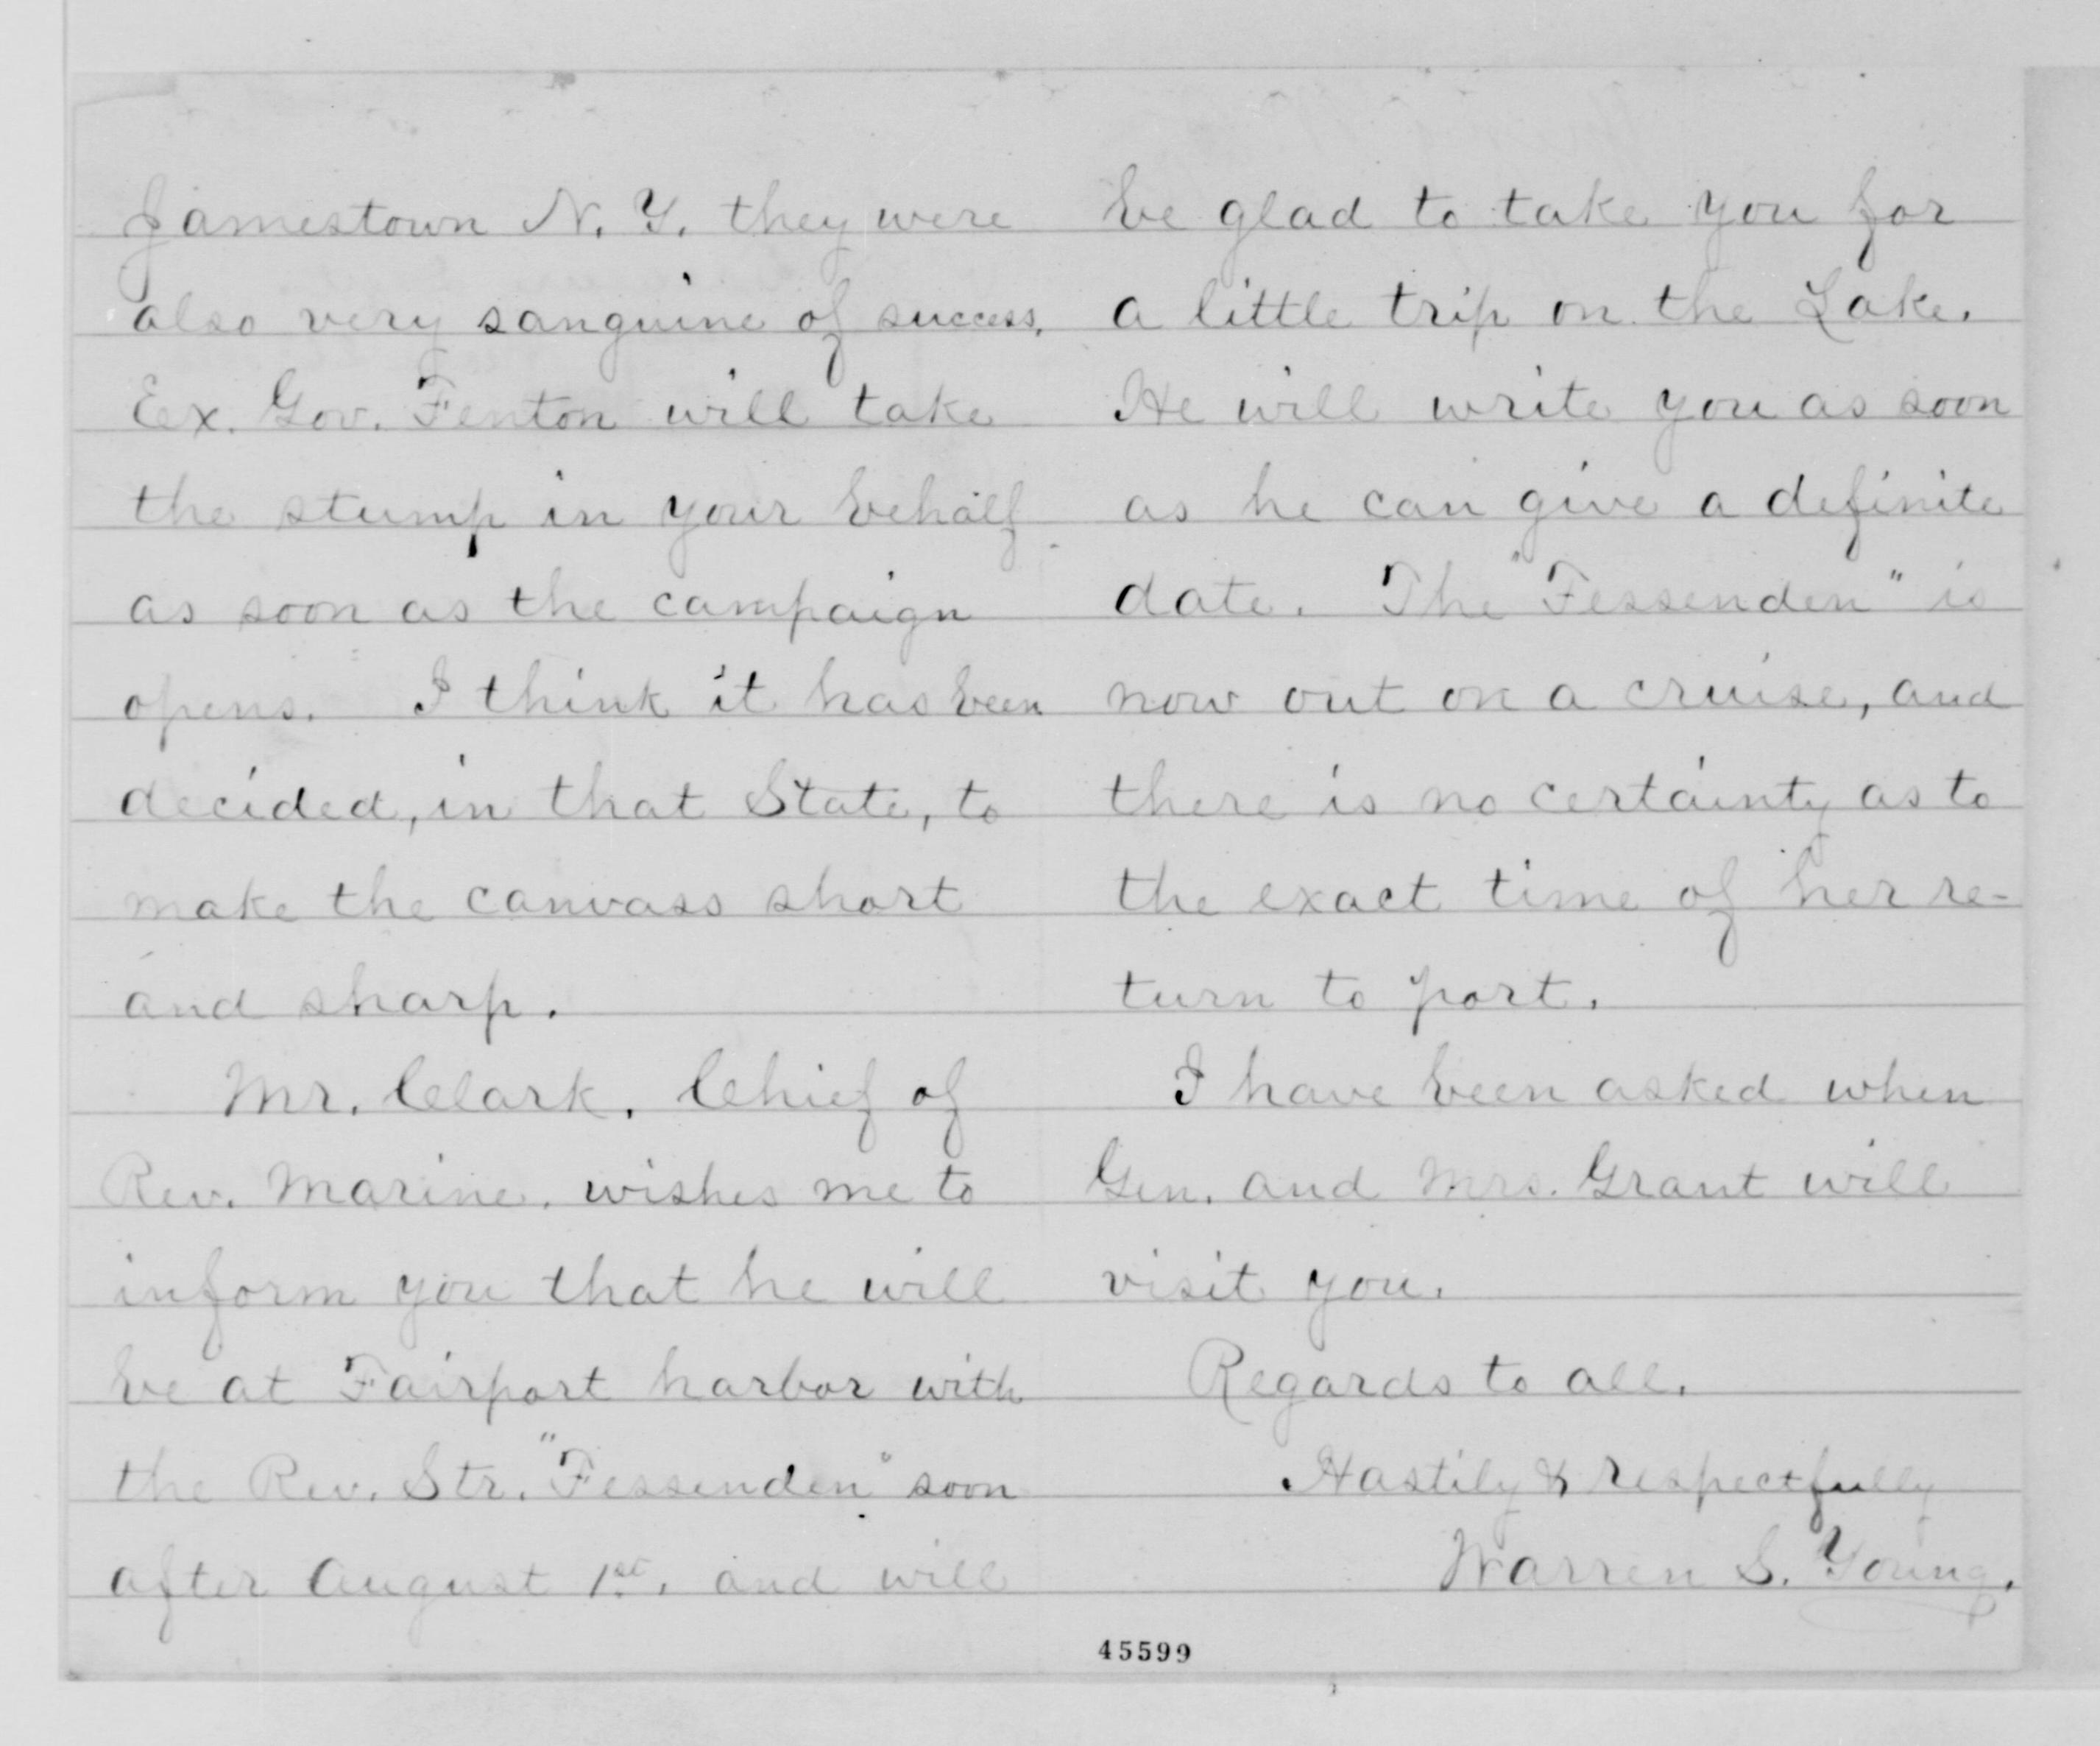 Jamestown N. Y. they were
also very sanguine of success.
Ex. Gov. Fenton will take
the stump in your behalf
as soon as the campaign
opens. I think it has been
decided, in that State, to
make the canvass short
and sharp.
Mr. Clark. Chief of
Rev. Marine. wishes me to
inform you that he will
be at Fairport harbor with
the Rev. Str. "Fessenden" soon
after August 1st. and will
be glad to take you for
a little trip on the Lake.
He will write you as soon
as he can give a definite
date. The "Fessenden" is
now out on a cruise, and
there is no certainty as to
the exact time of her re-
turn to port.
I have been asked when
Gen. and Mrs. Grant will
visit you.
Regards to all.
Hastily & respectfully
Warren S. Young.
45599